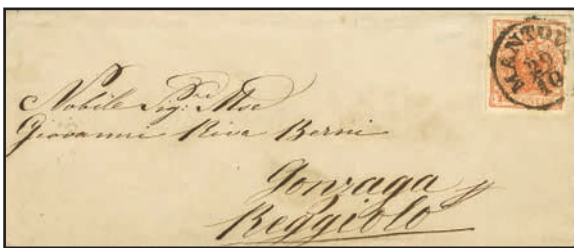 MANTOVA
29
10
Nobile Sig: Mse
Giovanni Riva Berni
Gonzaga p
Reggiolo